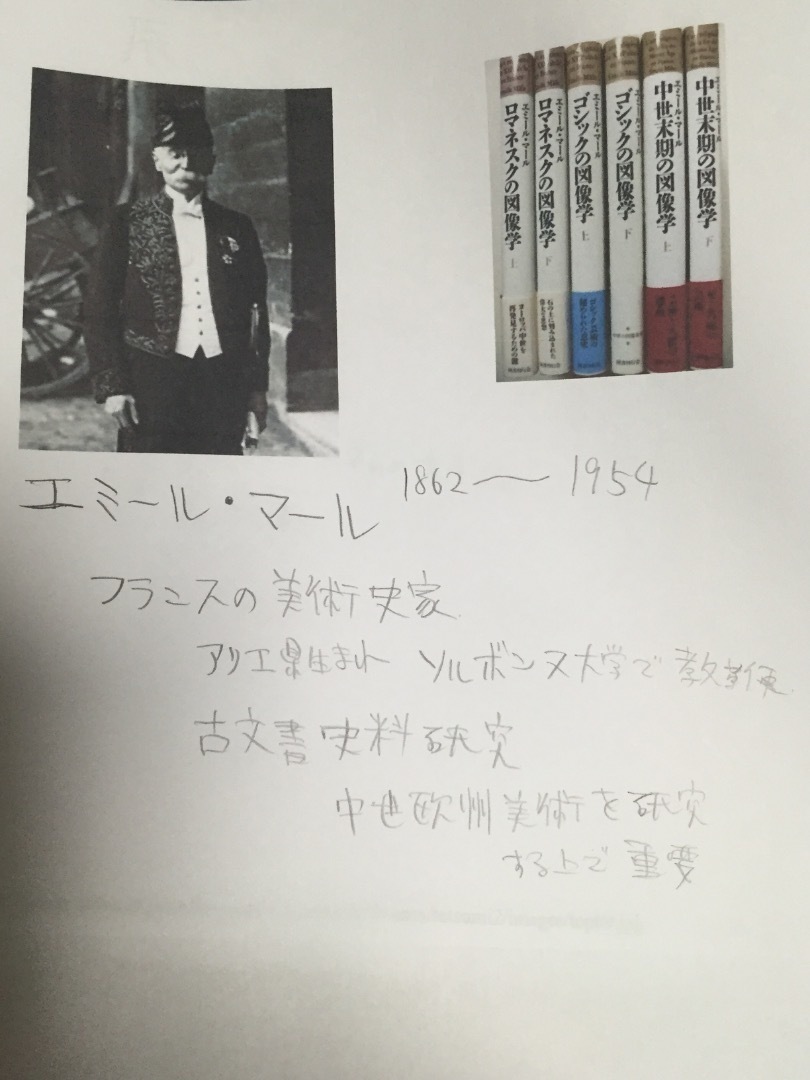 エミール・マール
ロマネスクの図像学 上
エミール・マール
ロマネスクの図像学 下
エミール・マール
ゴシックの図像学 上
エミール・マール
ゴシックの図像学 下
エミール・マール
中世末期の図像学 上
エミール・マール
中世末期の図像学 下
ヨーロッパ中世を
再発見するための鍵
石の上に刻み込まれた
エミール・マール 1862〜1954
フランスの美術史家
アリエ県生まれ ソルボンヌ大学で教鞭
古文書史料研究
中世欧州美術を研究
する上で重要